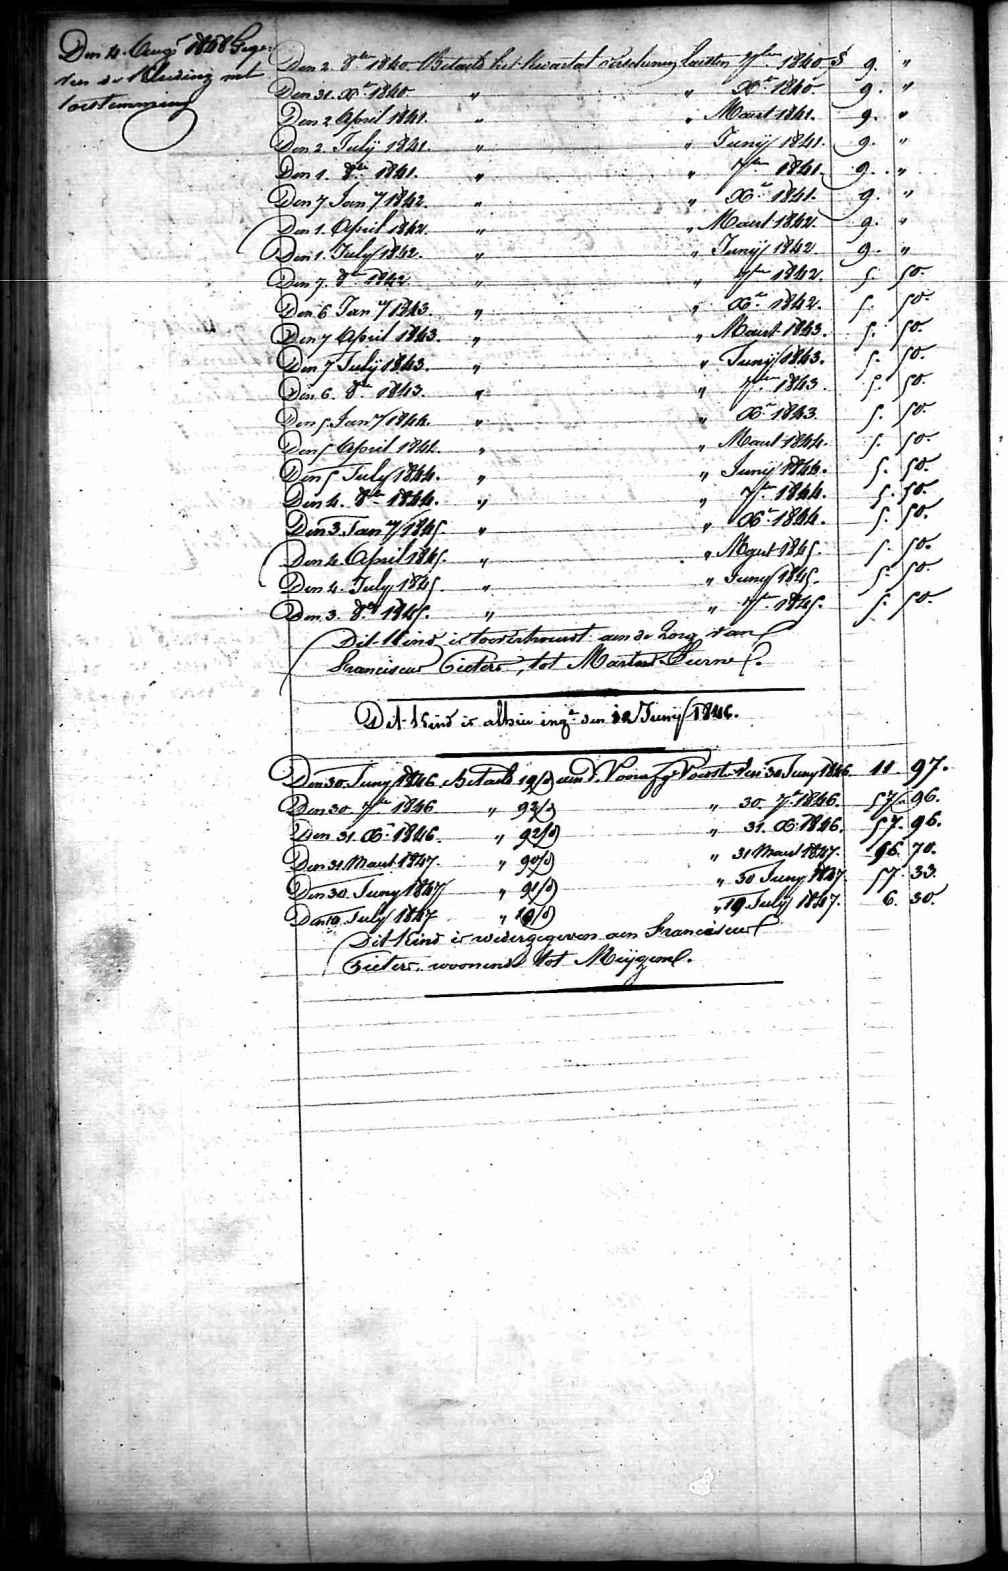 Den 4 Augt 1848 Gege-
ven de Kleeding met
toestemming
Den 2 8ber 1840 Betaald het Kwartal verschenen laesten 7ber 1840 9. "
Den 31. Xr 1840 " " Xr 1840 9. "
Den 2 April 1841. " " Maert 1841. 9. "
Den 2. July 1841 " " Junij 1841. 9. "
Den 1. 8ber 1841. " " 7ber 1841 9. "
Den 7 Jany 1842 " " Xr 1841. 9. "
Den 1. April 1842. " " Maert 1842. 9. "
Den 1. July 1842. " " Junij 1842 9. "
Den 7. 8ber 1842 " " 7ber 1842. 5. 50.
Den 6 Jany 1843. " " Xr 1842. 5. 50.
Den 7 April 1843. " " Maert 1843. 5. 50.
Den 7 July 1843. " " Junij 1843. 5. 50.
Den 6. 8ber 1843. " " 7ber 1843 5. 50.
Den 5 Jany 1844. " " Xr 1843 5. 50.
Den 5 April 1844. " " Maert 1844. 5. 50.
Den 5 July 1844. " " Junij 1844. 5. 50.
Den 4. 8ber 1844. " " 7ber 1844. 5. 50.
Den 3 Jany 1845 " " Xr 1844. 5. 50.
Den 4 April 1845. " " Maert 1845. 5. 50.
Den 4. July 1845 " " Juny 1845. 5. 50.
Den 3. 8ber 1845. " " 7ber 1845. 5. 50.
Dit Kind is toevertrouwt aen de Zorg van
Franciscus Pieters, tot Martens Leerne.
Dit Kind is alhier ingt den 12 Junij 1846.
Den 30. Juny 1846 Betaeld 19/d aen d. Voorzg Voorst. den 30 Juny 1846 11 97.
Den 30 7ber 1846 " 92/d " 30. 7r 1846. 57. 96.
Den 31. Xr 1846. " 92/d " 31. Xr 1846. 57. 96.
Den 31 Maert 1847. " 90/d " 31 Maert 1847. 56. 70.
Den 30. Juny 1847 " 91/d " 30 Juny 1847. 57. 33.
Den 19. July 1847 " 10/d " 19 July 1847. 6. 30.
Dit Kind is wedergegeven aen Franciscus
Pieters, woonende tot Meijgem.